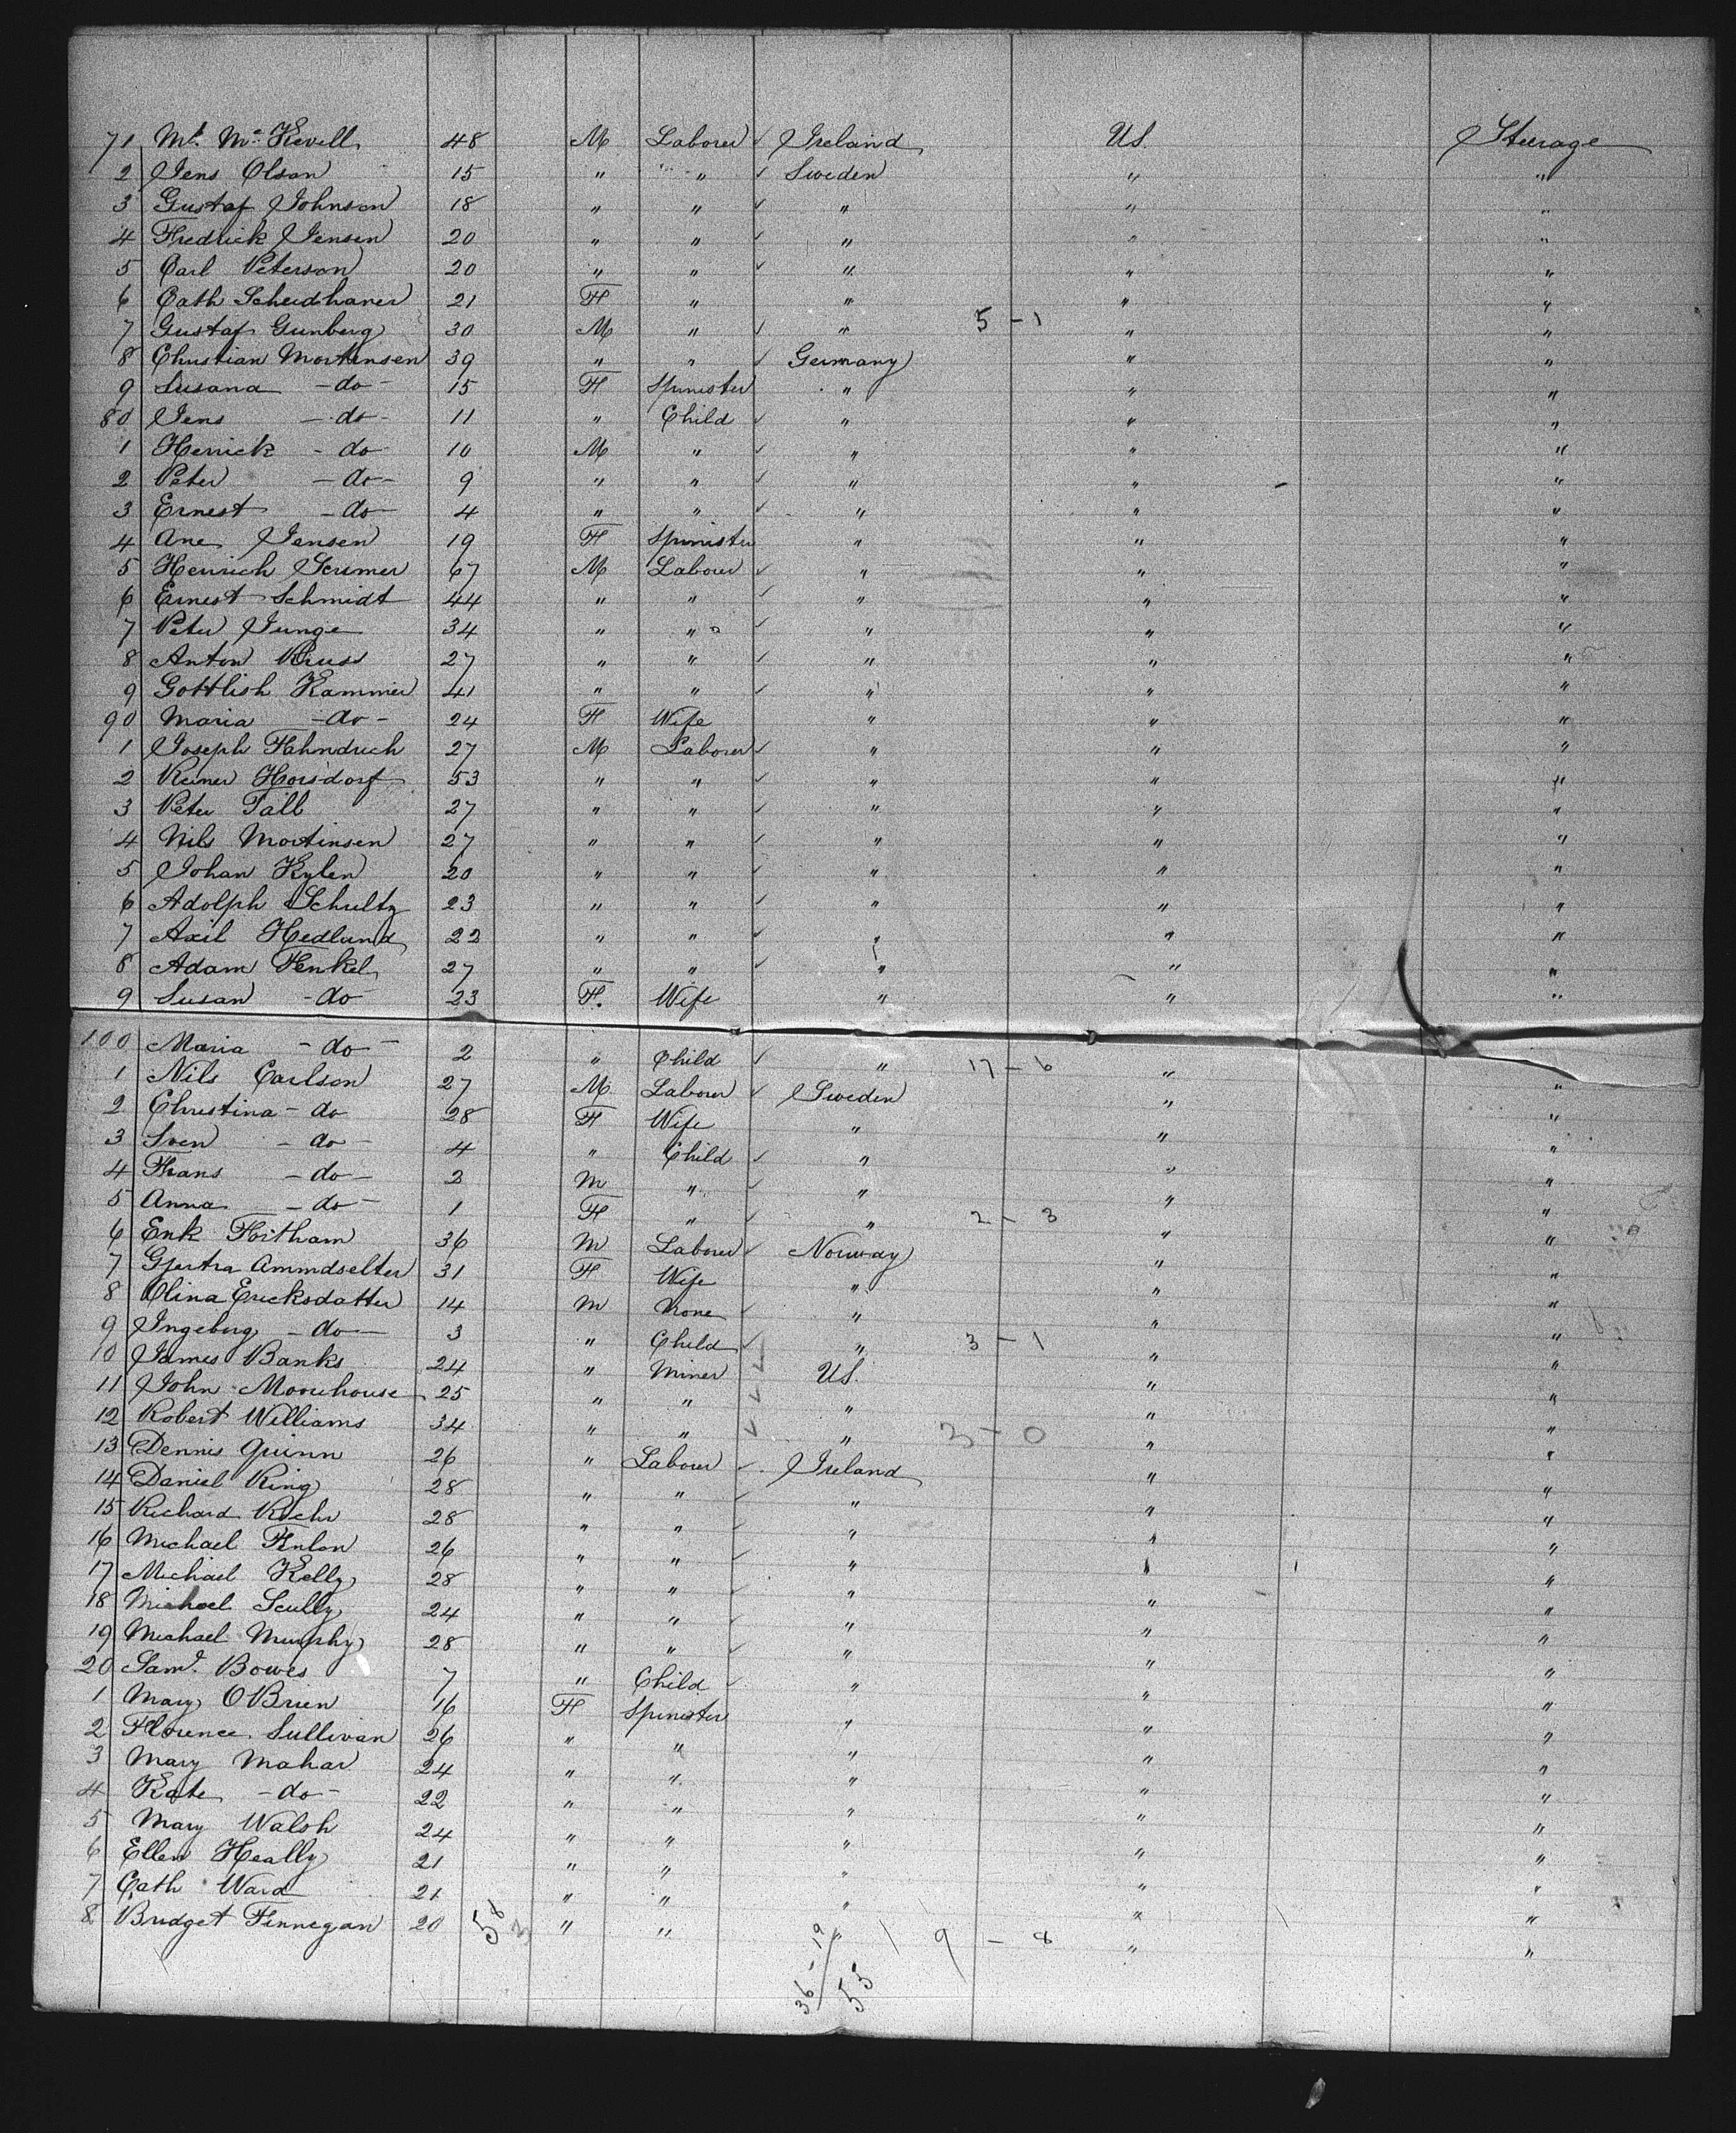 71 Mt. Mc Kevell 48 M Laborer ✓ Ireland US. Steerage
2 Jens Olson 15 " " ✓ Sweden " "
3 Gustaf Johnson 18 " " ✓ " " "
4 Fredrick Jensen 20 " " ✓ " " "
5 Carl Peterson 20 " " ✓ " " "
6 Cath 21 F " " " "
7 Gustaf Gunberg 30 M " ✓ " 5 - 1 " "
8 Christian Mortensen 39 " " ✓ Germany " "
9 Susana - do - 15 F Spinister " " "
80 Jens - do - 11 " Child ✓ " " "
1 Henrick - do - 10 M " ✓ " " "
2 Peter - do - 9 " " ✓ " " "
3 Ernest - do - 4 " " ✓ " " "
4 Ane Jensen 19 F Spinister " " "
5 Henrich 67 M Laborer ✓ " " "
6 Ernest Schmidt 44 " " ✓ " " "
7 Peter Junge 34 " " ✓ " " "
8 Anton Kruss 27 " " ✓ " " "
9 Gottlish Kammer 41 " " ✓ " " "
90 Maria - do - 24 F Wife " " "
1 Joseph Fahndrich 27 M Laborer ✓ " " "
2 Reiner Horsdorf 53 " " ✓ " " "
3 Peter Tall 27 " " ✓ " " "
4 Nils Mortinsen 27 " " ✓ " " "
5 Johan Kylen 20 " " ✓ " " "
6 Adolph Schultz 23 " " ✓ " " "
7 Axil Hedlund 22 " " ✓ " " "
8 Adam Henkel 27 " " ✓ " " "
9 Susan - do - 23 F. Wife " " "
100 Maria - do - 2 " Child ✓ " 17 - 6 " "
1 Nils Carlson 27 M Laborer ✓ Sweden " "
2 Christina - do 28 F Wife " " "
3 Sven - do - 4 " Child ✓ " " "
4 Frans - do - 2 M " ✓ " " "
5 Anna - do - 1 F " ✓ " 2 - 3 " "
6 Erik Fortham 36 M Laborer ✓ Norway " "
7 Gjertra Ammdselter 31 F Wife " " "
8 Olina Ericksdatter 14 M None ✓ " " "
9 Ingeborg - do - 3 " Child ✓ " 3 - 1 " "
10 James Banks 24 " Miner ✓ US. " "
11 John Moorehouse 25 " " ✓ " " "
12 Robert Williams 34 " " ✓ " 3 - 0 " "
13 Dennis Quinn 26 " Laborer ✓ Ireland " "
14 Daniel King 28 " " ✓ " " "
15 Richard 28 " " ✓ " " "
16 Michael Fenlon 26 " " ✓ " " "
17 Michael Kelly 28 " " ✓ " " "
18 Michael Scully 24 " " ✓ " " "
19 Michael Murphy 28 " " ✓ " " "
20 Saml. Bowes 7 " Child ✓ " " "
1 Mary OBrien 16 F Spinister " " "
2 Florence Sullivan 26 " " " " "
3 Mary Mahar 24 " " " " "
4 Kate - do - 22 " " " " "
5 Mary Walsh 24 " " " " "
6 Ellen Heally 21 " " " " "
7 Cath Ward 21 " " " " "
8 Bridget Finnegan 20 58 " " " 9 - 8 " "
36 - 19
55